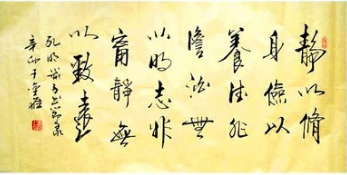 靜以脩
身儉以
養德非
澹泊無
以明志非
甯靜無
以致遠
孔明誡子
辛卯于